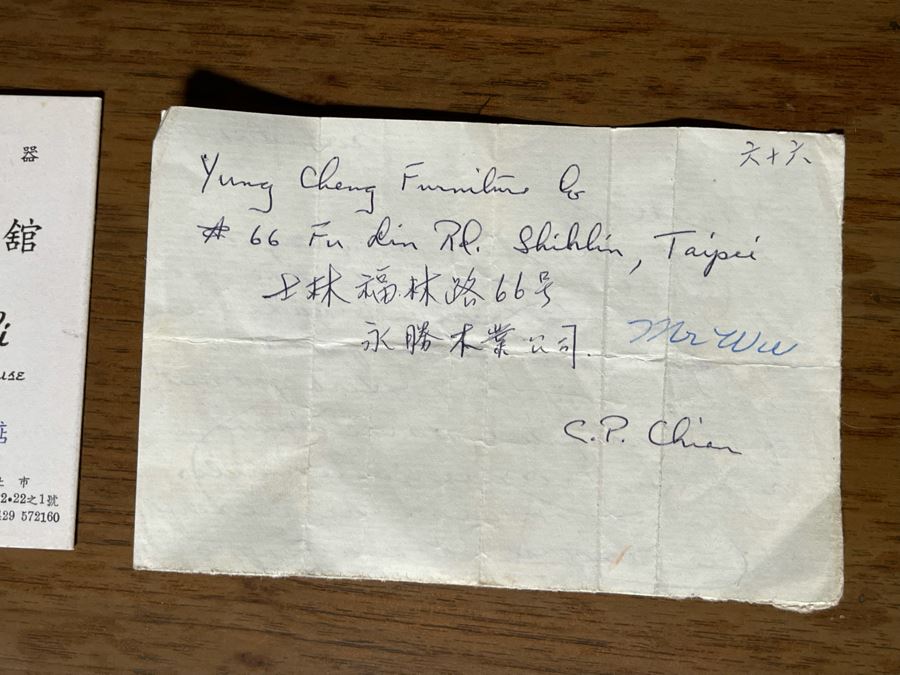 器
舘
市
2•22之1號
29 572160
六十六
Yung Cheng Furniture Co
# 66 Fu Lin Rd. Shihlin, Taipei
士林福林路66号
永勝木業公司.
Mr Wu
C.P. Chien